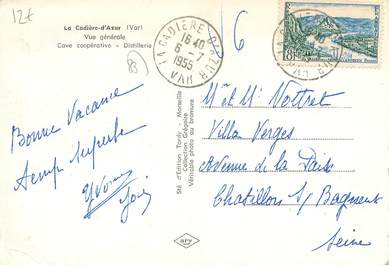 12€
La Cadière-d'Azur (Var)
Vue générale
Cave coopérative - Distillerie
83
LA CADIÈRE D'AZUR
16 40
6 - 7
1955
VAR
6
Bonne Vacance
temp superbe
Sté d'Édition Tardy - Marseille
Collection Grégoire
Véritable photo au bromure
ary
M et Mme Vottret
Villa Verges
Avenue de la Paix
Chatillon s/ Bagneux
Seine